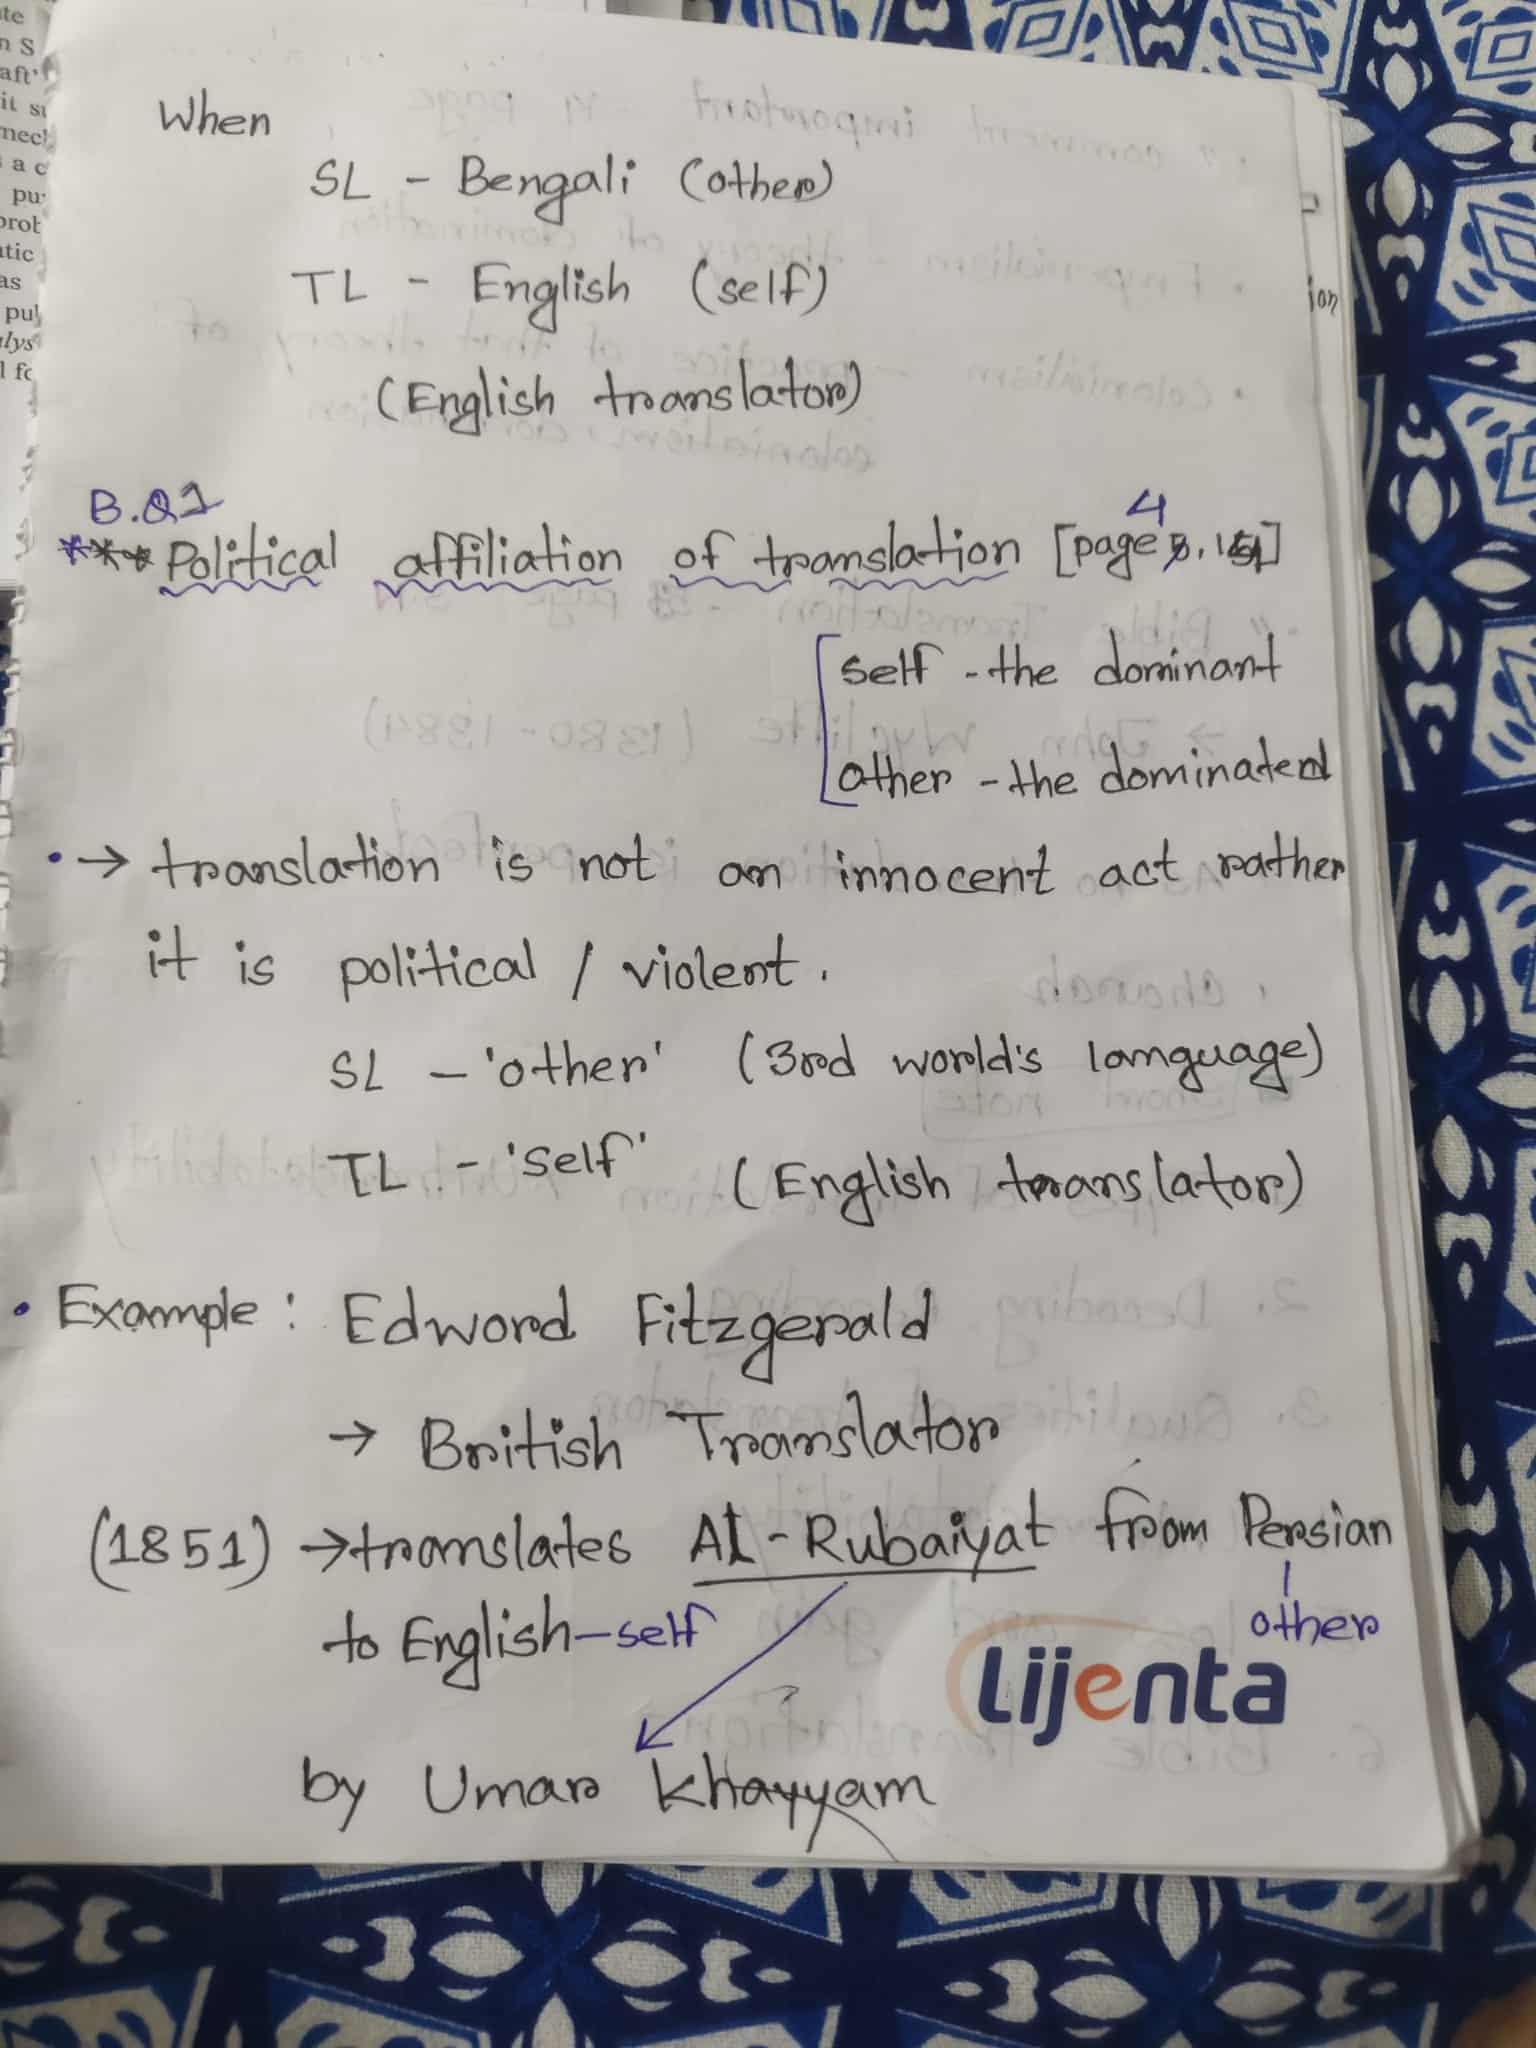 When
SL - Bengali (other)
TL - English (self)
(English translator)
B.Q1
*** Political affiliation of translation [page 4
self - the dominant
other - the dominated
• → translation is not an innocent act rather
it is political / violent.
SL - 'other' (3rd world's language)
TL - 'self' (English translator)
• Example : Edword Fitzgerald
→ British Translator
(1851) → translates Al-Rubaiyat from Persian
other
to English - self
by Umar Khayyam
Lijenta